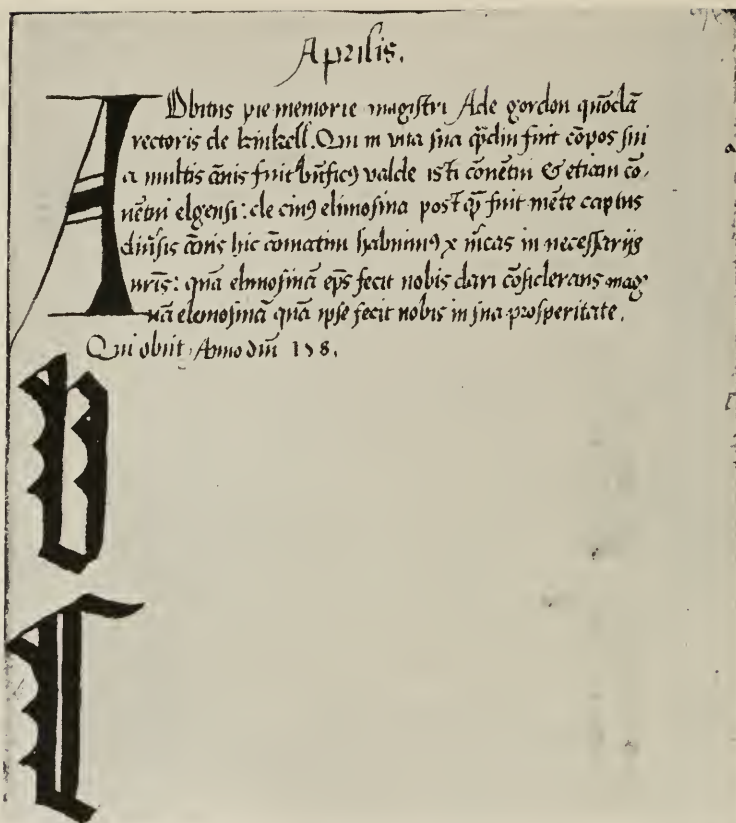 Aprilis.
A Obitus pie memorie magistri Ade gordon quōdā
rectoris de kinkell. Qui in vita sua q̄diu fuit cōpos sui
a multis ānis fuit būfic9 valde isti cōuētui & etiam cō-
uētui elgensi: de cui9 elimosina post q̄ fuit mēte captus
diūsis ānis hic cōmatim habuim9 x mcas in necessarijs
nrīs: quā elimosinā ep̄s fecit nobis dari cōsiderans mag
nā elemosinā quā ipse fecit nobis in sua prosperitate.
Qui obiit, Anno dn̄i
A
p